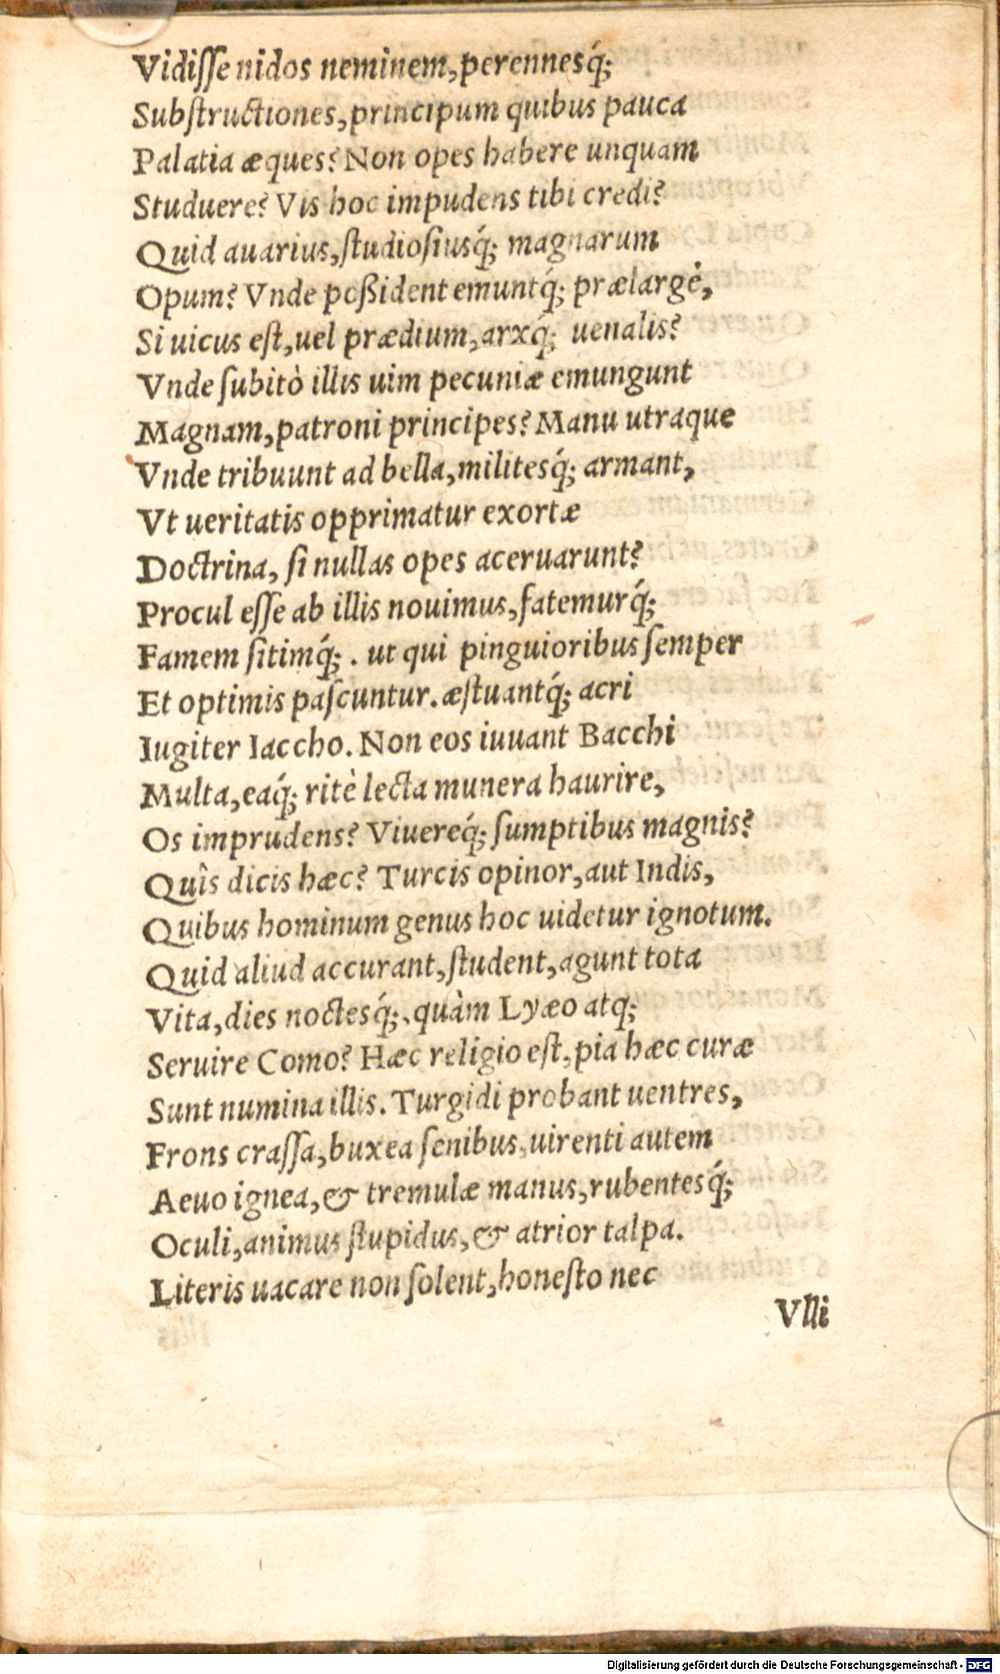 Vidiſſe nidos neminem, perennesq́;
Subſtructiones, principum quibus pauca
Palatia æques? Non opes habere unquam
Studuere? Vis hoc impudens tibi credi?
Quid auarius, ſtudioſiusq́; magnarum
Opum? Vnde poßident emuntq́; prælargè,
Si uicus eſt, uel prædium, arxq́; uenalis?
Vnde ſubitò illis uim pecuniæ emungunt
Magnam, patroni principes? Manu utraque
Vnde tribuunt ad bella, militesq́; armant,
Vt ueritatis opprimatur exortæ
Doctrina, ſi nullas opes aceruarunt?
Procul eſſe ab illis nouimus, fatemurq́;
Famem ſitimq́; . ut qui pinguioribus ſemper
Et optimis paſcuntur. æſtuantq́; acri
Iugiter Iaccho. Non eos iuuant Bacchi
Multa, eaq́; ritè lecta munera haurire,
Os imprudens? Viuereq́; ſumptibus magnis?
Quîs dicis hæc? Turcis opinor, aut Indis,
Quibus hominum genus hoc uidetur ignotum.
Quid aliud accurant, ſtudent, agunt tota
Vita, dies noctesq́;, quàm Lyæo atq;
Seruire Como? Hæc religio eſt, pia hæc curæ
Sunt numina illis. Turgidi probant uentres,
Frons craſſa, buxea ſenibus, uirenti autem
Aeuo ignea, & tremulæ manus, rubentesq́;
Oculi, animus ſtupidus, & atrior talpa.
Literis uacare non ſolent, honeſto nec
Vlli
Digitalisierung gefördert durch die Deutsche Forschungsgemeinschaft - DFG